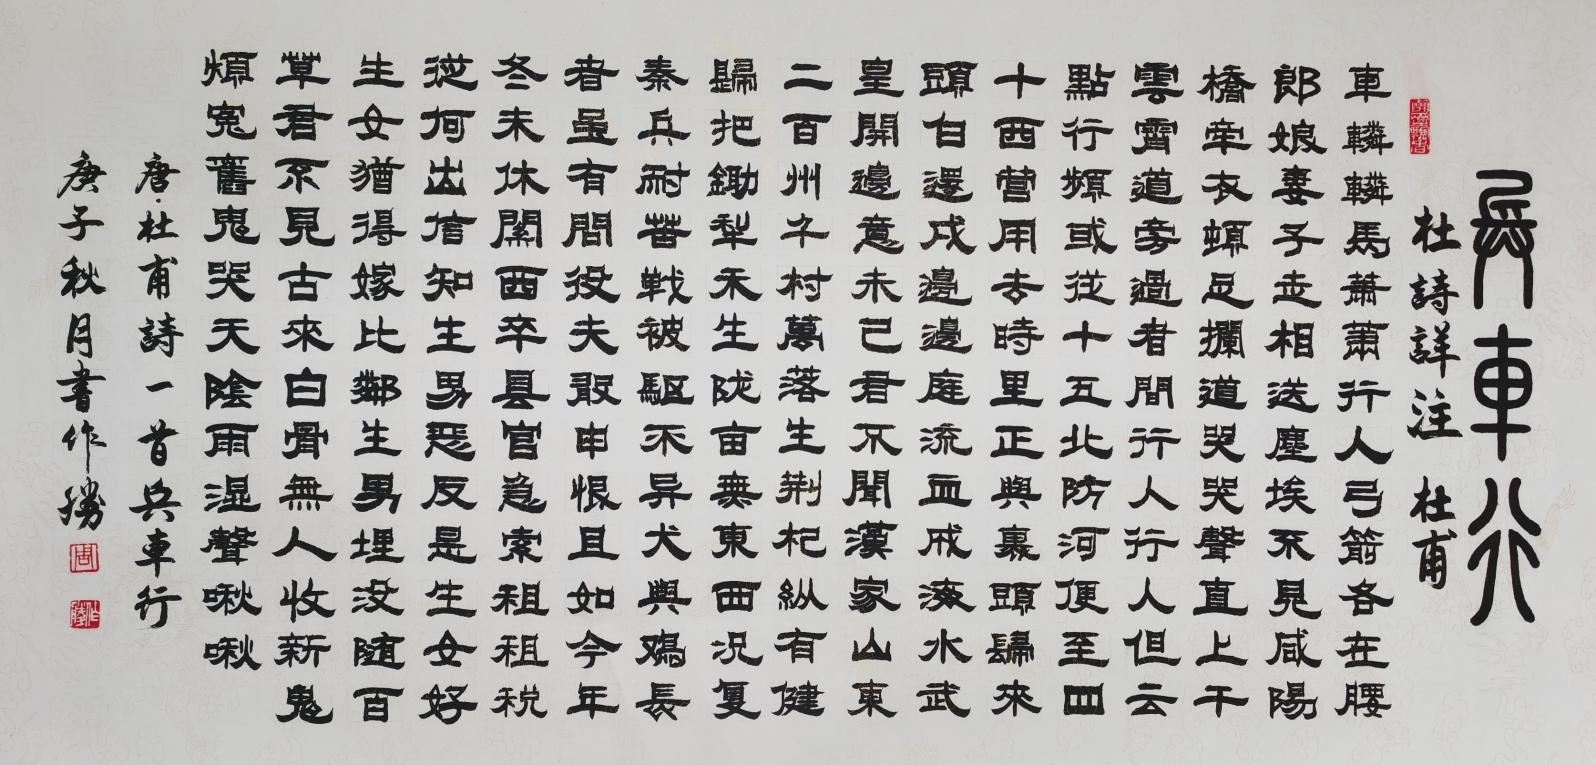 兵車行
杜詩詳注 杜甫
車轔轔馬蕭蕭行人弓箭各在腰
郎娘妻子走相送塵埃不見咸陽
橋牽衣頓足攔道哭哭聲直上干
雲霄道旁過者問行人行人但云
點行頻或從十五北防河便至四
十西營用去時里正與裹頭歸來
頭白還戍邊邊庭流血成海水武
皇開邊意未已君不聞漢家山東
二百州千村萬落生荊杞縱有健
歸把鋤犁禾生陇亩無東西況复
秦兵耐苦戰被驅不异犬與鷄長
者虽有問役夫敢申恨且如今年
冬未休關西卒县官急索租租税
從何出信知生男惡反是生女好
生女猶得嫁比鄰生男埋没随百
草君不見古來白骨無人收新鬼
煩冤舊鬼哭天陰雨湿聲啾啾
唐·杜甫詩一首兵車行
庚子秋月書作勝
周
作勝